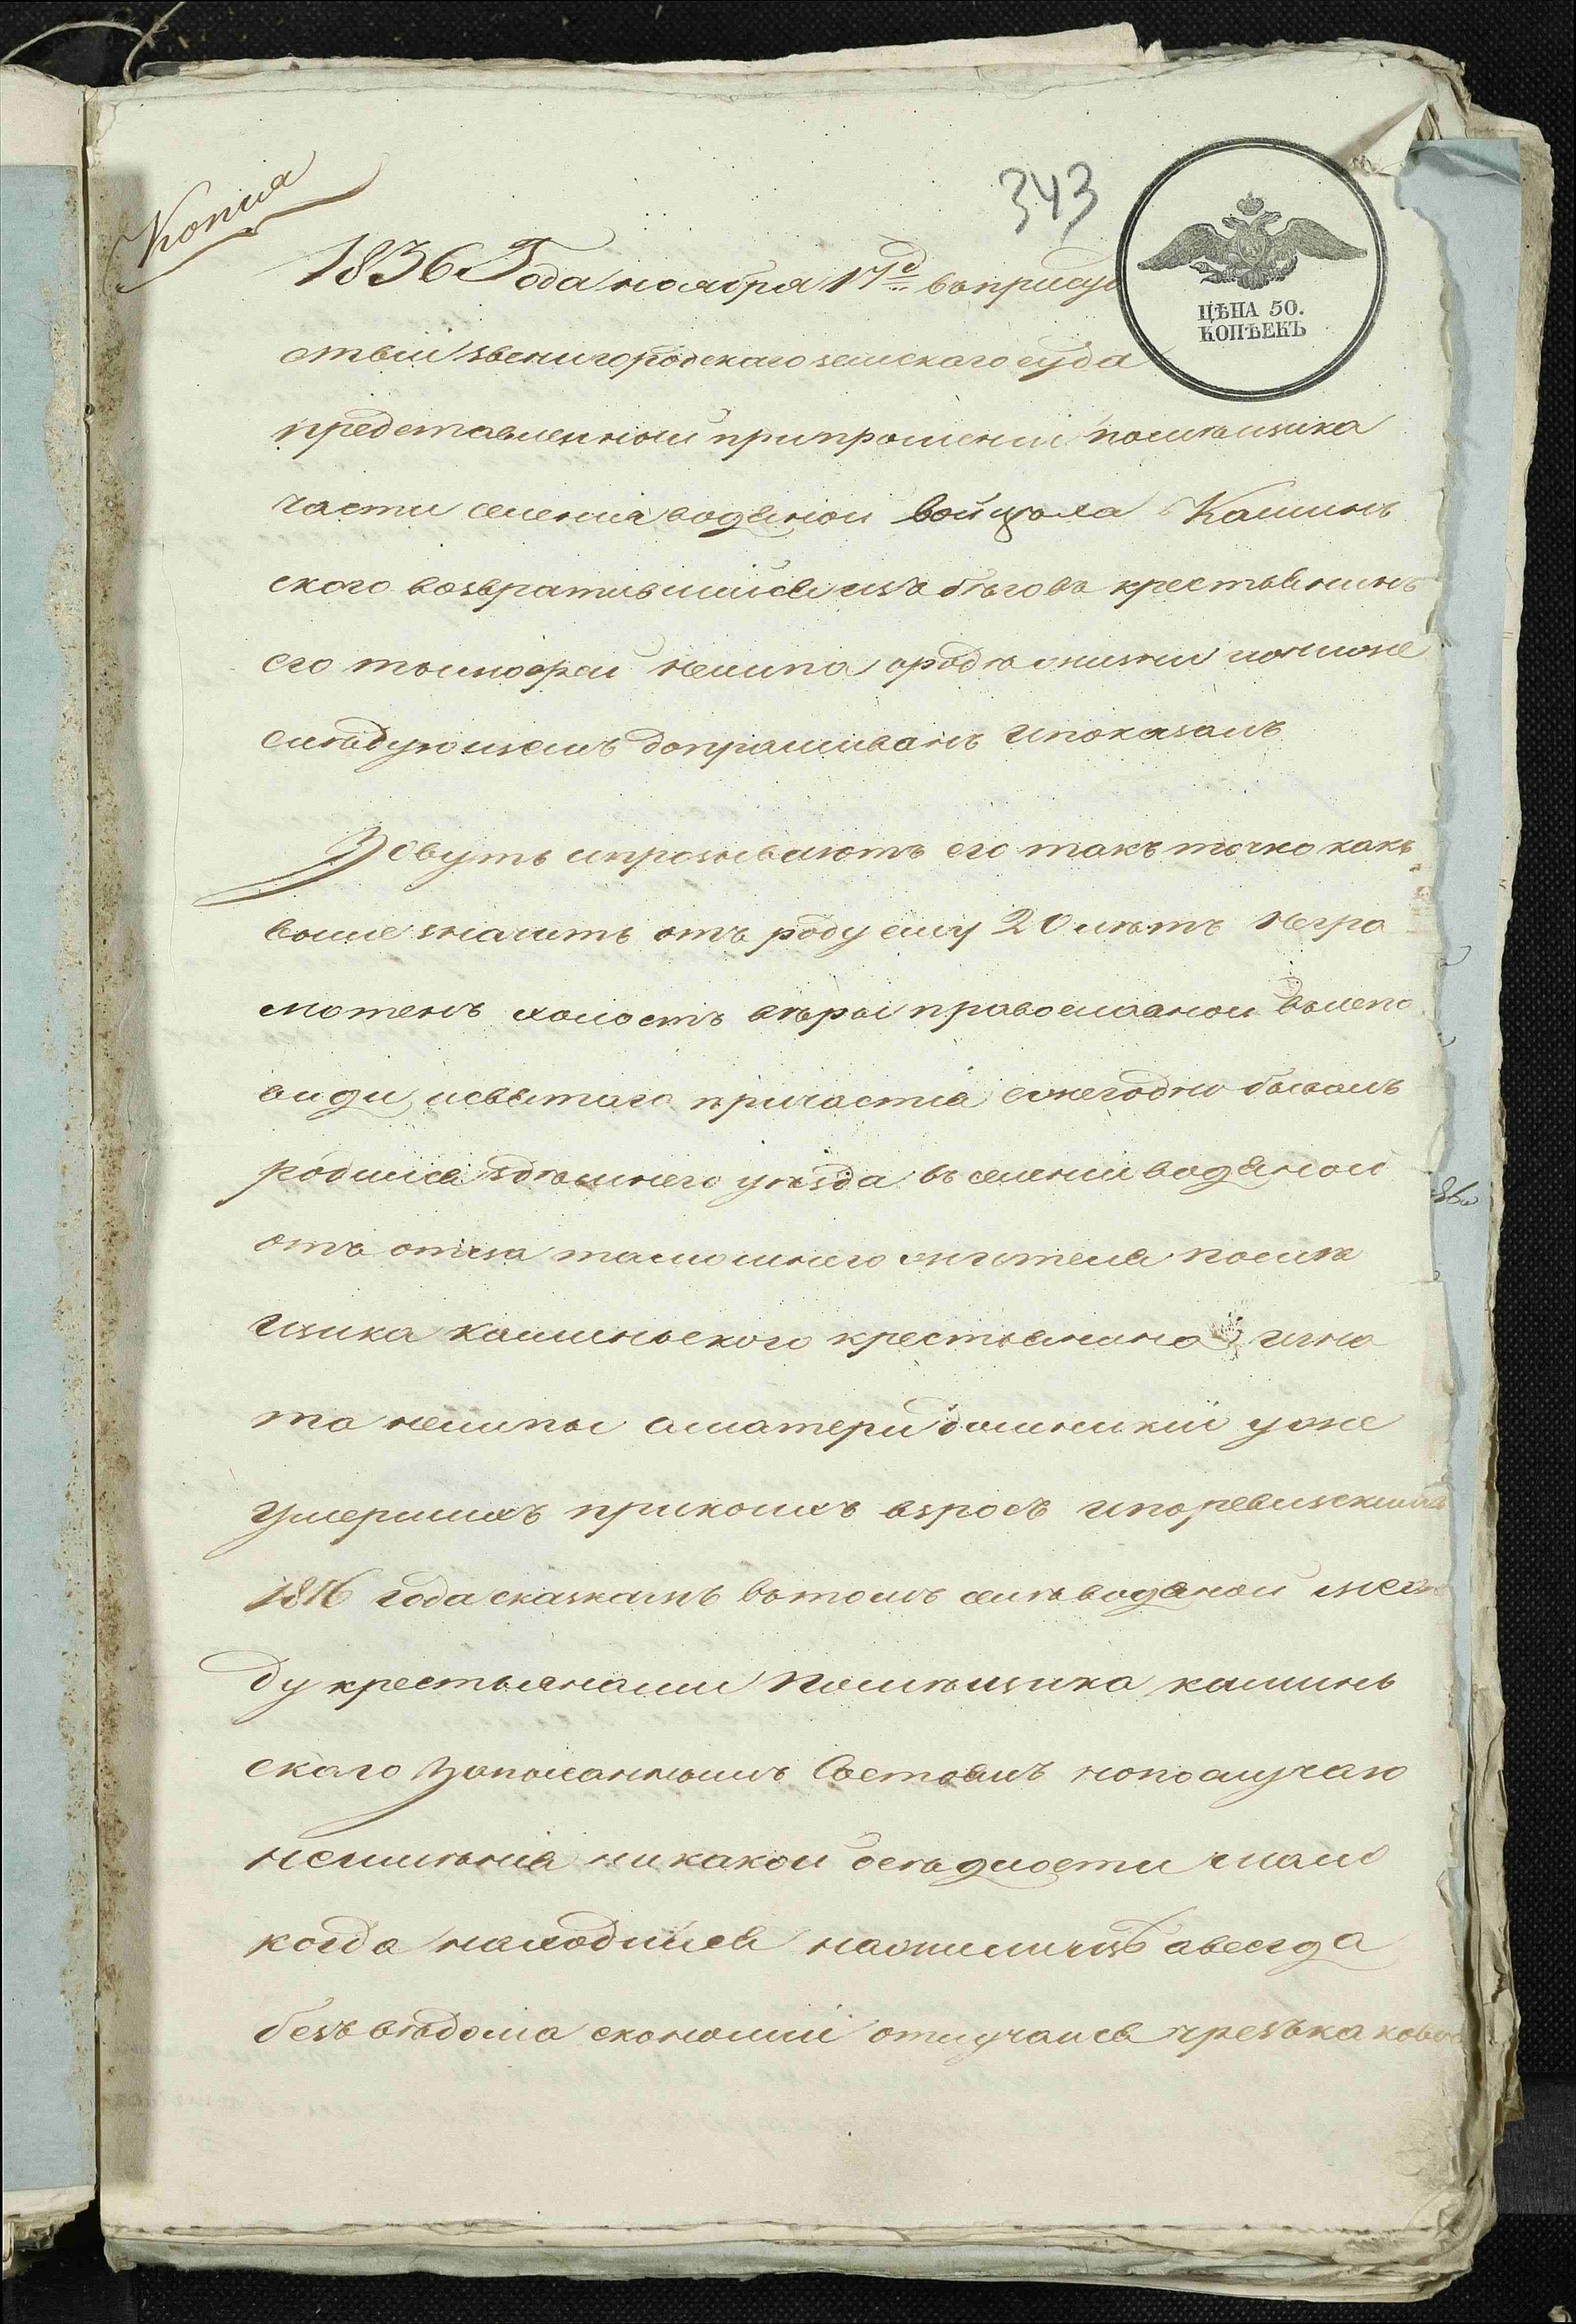 Копиа
343
ЦѢНА 50.
КОПѢЕКЪ
1836 Года ноября 17д въ присуд
ствіи звенигородскаго земскаго суда
представленный при прошеніи помѣщика
части селенія водяной Войцѣха Камин
ского возвратившійся изъ бѣговъ крестьянинъ
его тымофей немипа о родѣ жизни и о ниже
слѣдующемъ допрашиванъ и показалъ
Зовутъ и прозываютъ его такъ точно какъ
выше значитъ отъ роду ему 20 лѣтъ негра
мотенъ холостъ вѣры православной въ испо
види и святаго причастіа ежегодно бывалъ
родился здѣшнего уѣзда въ селеніи водяной
отъ отца тамошнего жителя помѣ
щика каминьского крестьянина игна
та немипы а матери домникіи уже
умершихъ при коихъ взросъ и по ревизскимъ
1816 года сказкамъ въ томъ селѣ водяной меж
ду крестьянами помѣщика каминь
скаго записаннымъ Состоялъ но по случаю
неимѣніа никакой осѣдлости мало
когда находился на жилищѣ а всегда
безъ вѣдома економіи отлучался чрезъ каково